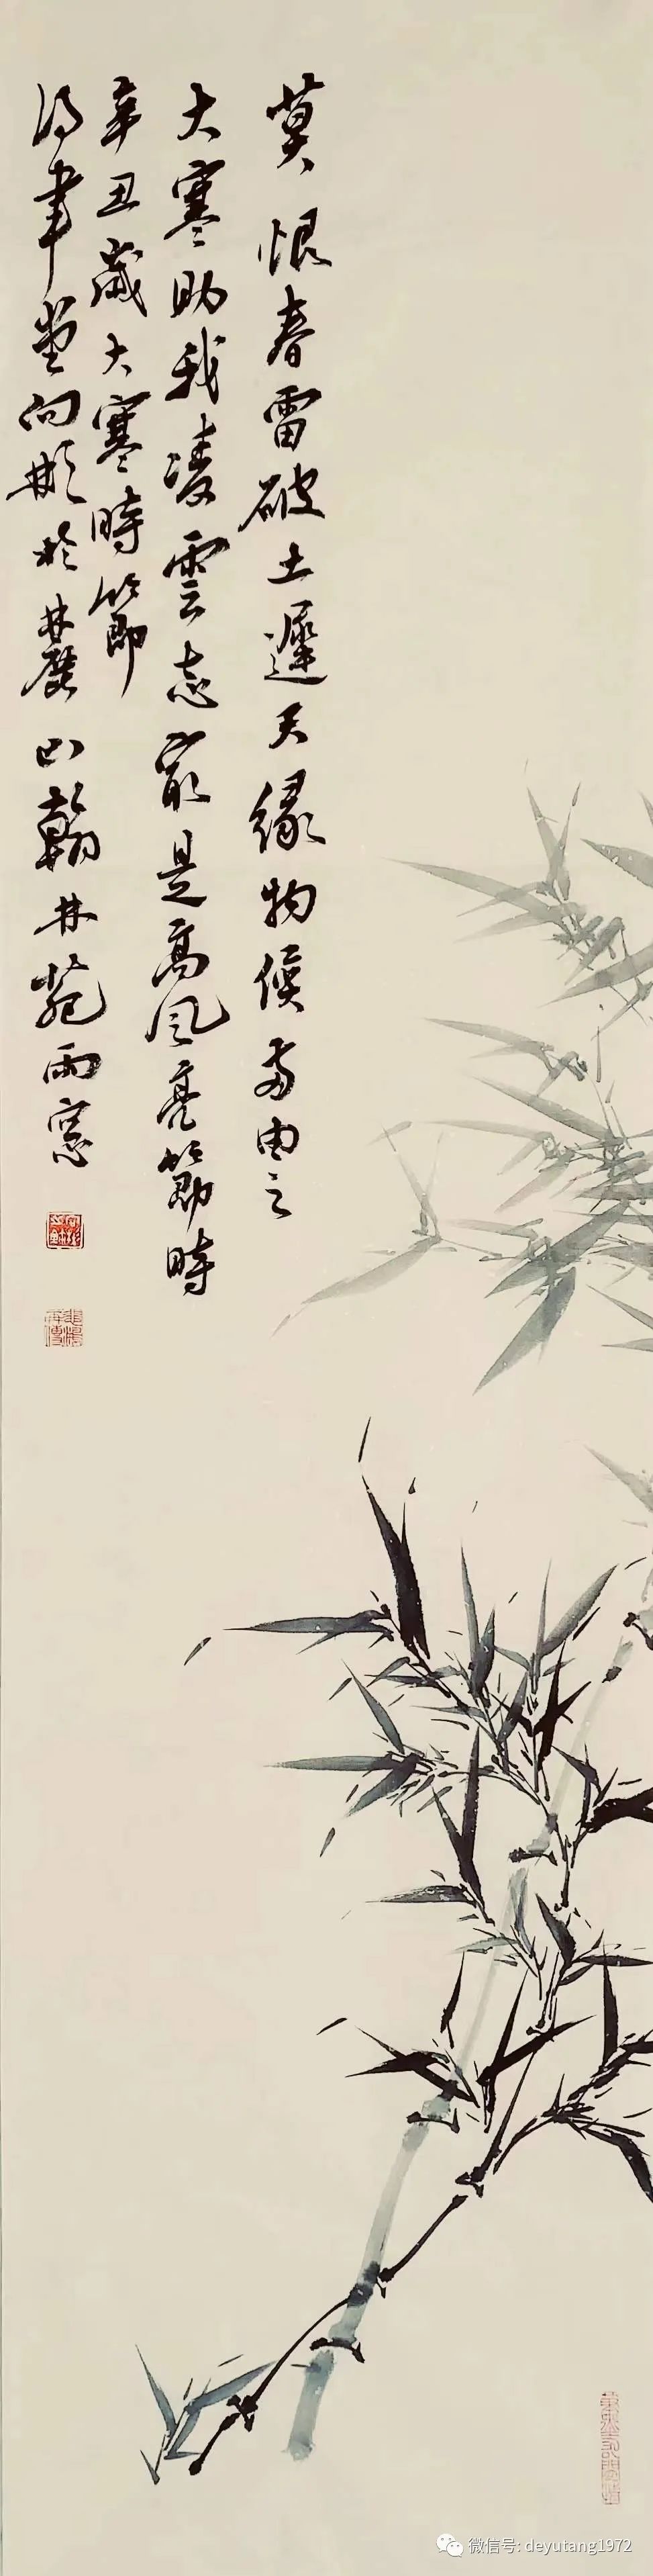 莫恨春雷破土遲天緣物候布由之
大寒助我凌雲志最是高風亮節時
辛丑歲大寒時節
得聿堂向彬於麓山翰林苑雨窓
微信号: deyutang1972